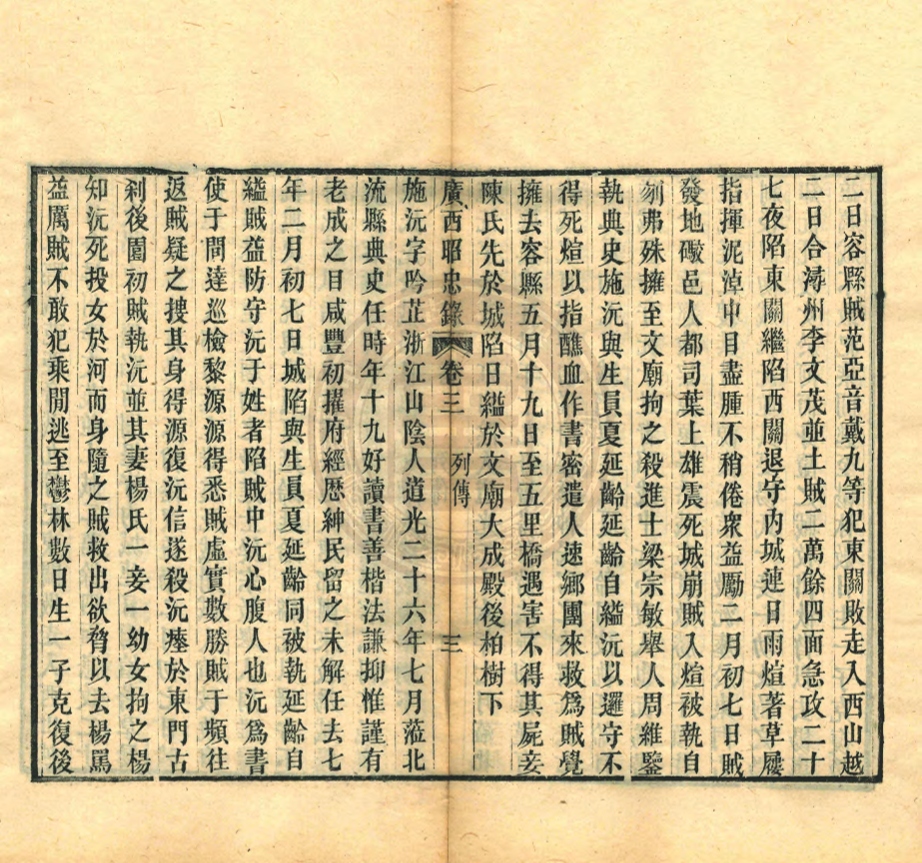 二日容縣賊范亞音戴九等犯東關敗走入西山越
二日合潯州李文茂並土賊二萬餘四面急攻二十
七夜陷東關繼陷西關退守内城連日雨煊著草屨
指揮泥淖中目盡腫不稍倦衆益勵二月初七日賊
發地礮邑人都司葉上雄震死城崩賊入煊被執自
刎弗殊擁至文廟拘之殺進士梁宗敏舉人周維鑒
執典史施沅與生員夏延齡延齡自縊沅以邏守不
得死煊以指醮血作書密遣人速鄉團來救爲賊覺
擁去容縣五月十九日至五里橋遇害不得其屍妾
陳氏先於城陷日縊於文廟大成殿後柏樹下
廣西昭忠錄 卷三 列傳 三
施沅字吟芷浙江山陰人道光二十六年七月蒞北
流縣典史任時年十九好讀書善楷法謙抑惟謹有
老成之目咸豐初擢府經歷紳民留之未解任去七
年二月初七日城陷與生員夏延齡同被執延齡自
縊賊益防守沅于姓者陷賊中沅心腹人也沅爲書
使于間達巡檢黎源源得悉賊虛實數勝賊于頻往
返賊疑之搜其身得源復沅信遂殺沅瘞於東門古
刹後園初賊執沅並其妻楊氏一妾一幼女拘之楊
知沅死投女於河而身隨之賊救出欲脅以去楊罵
益厲賊不敢犯乘閒逃至鬱林數日生一子克復後